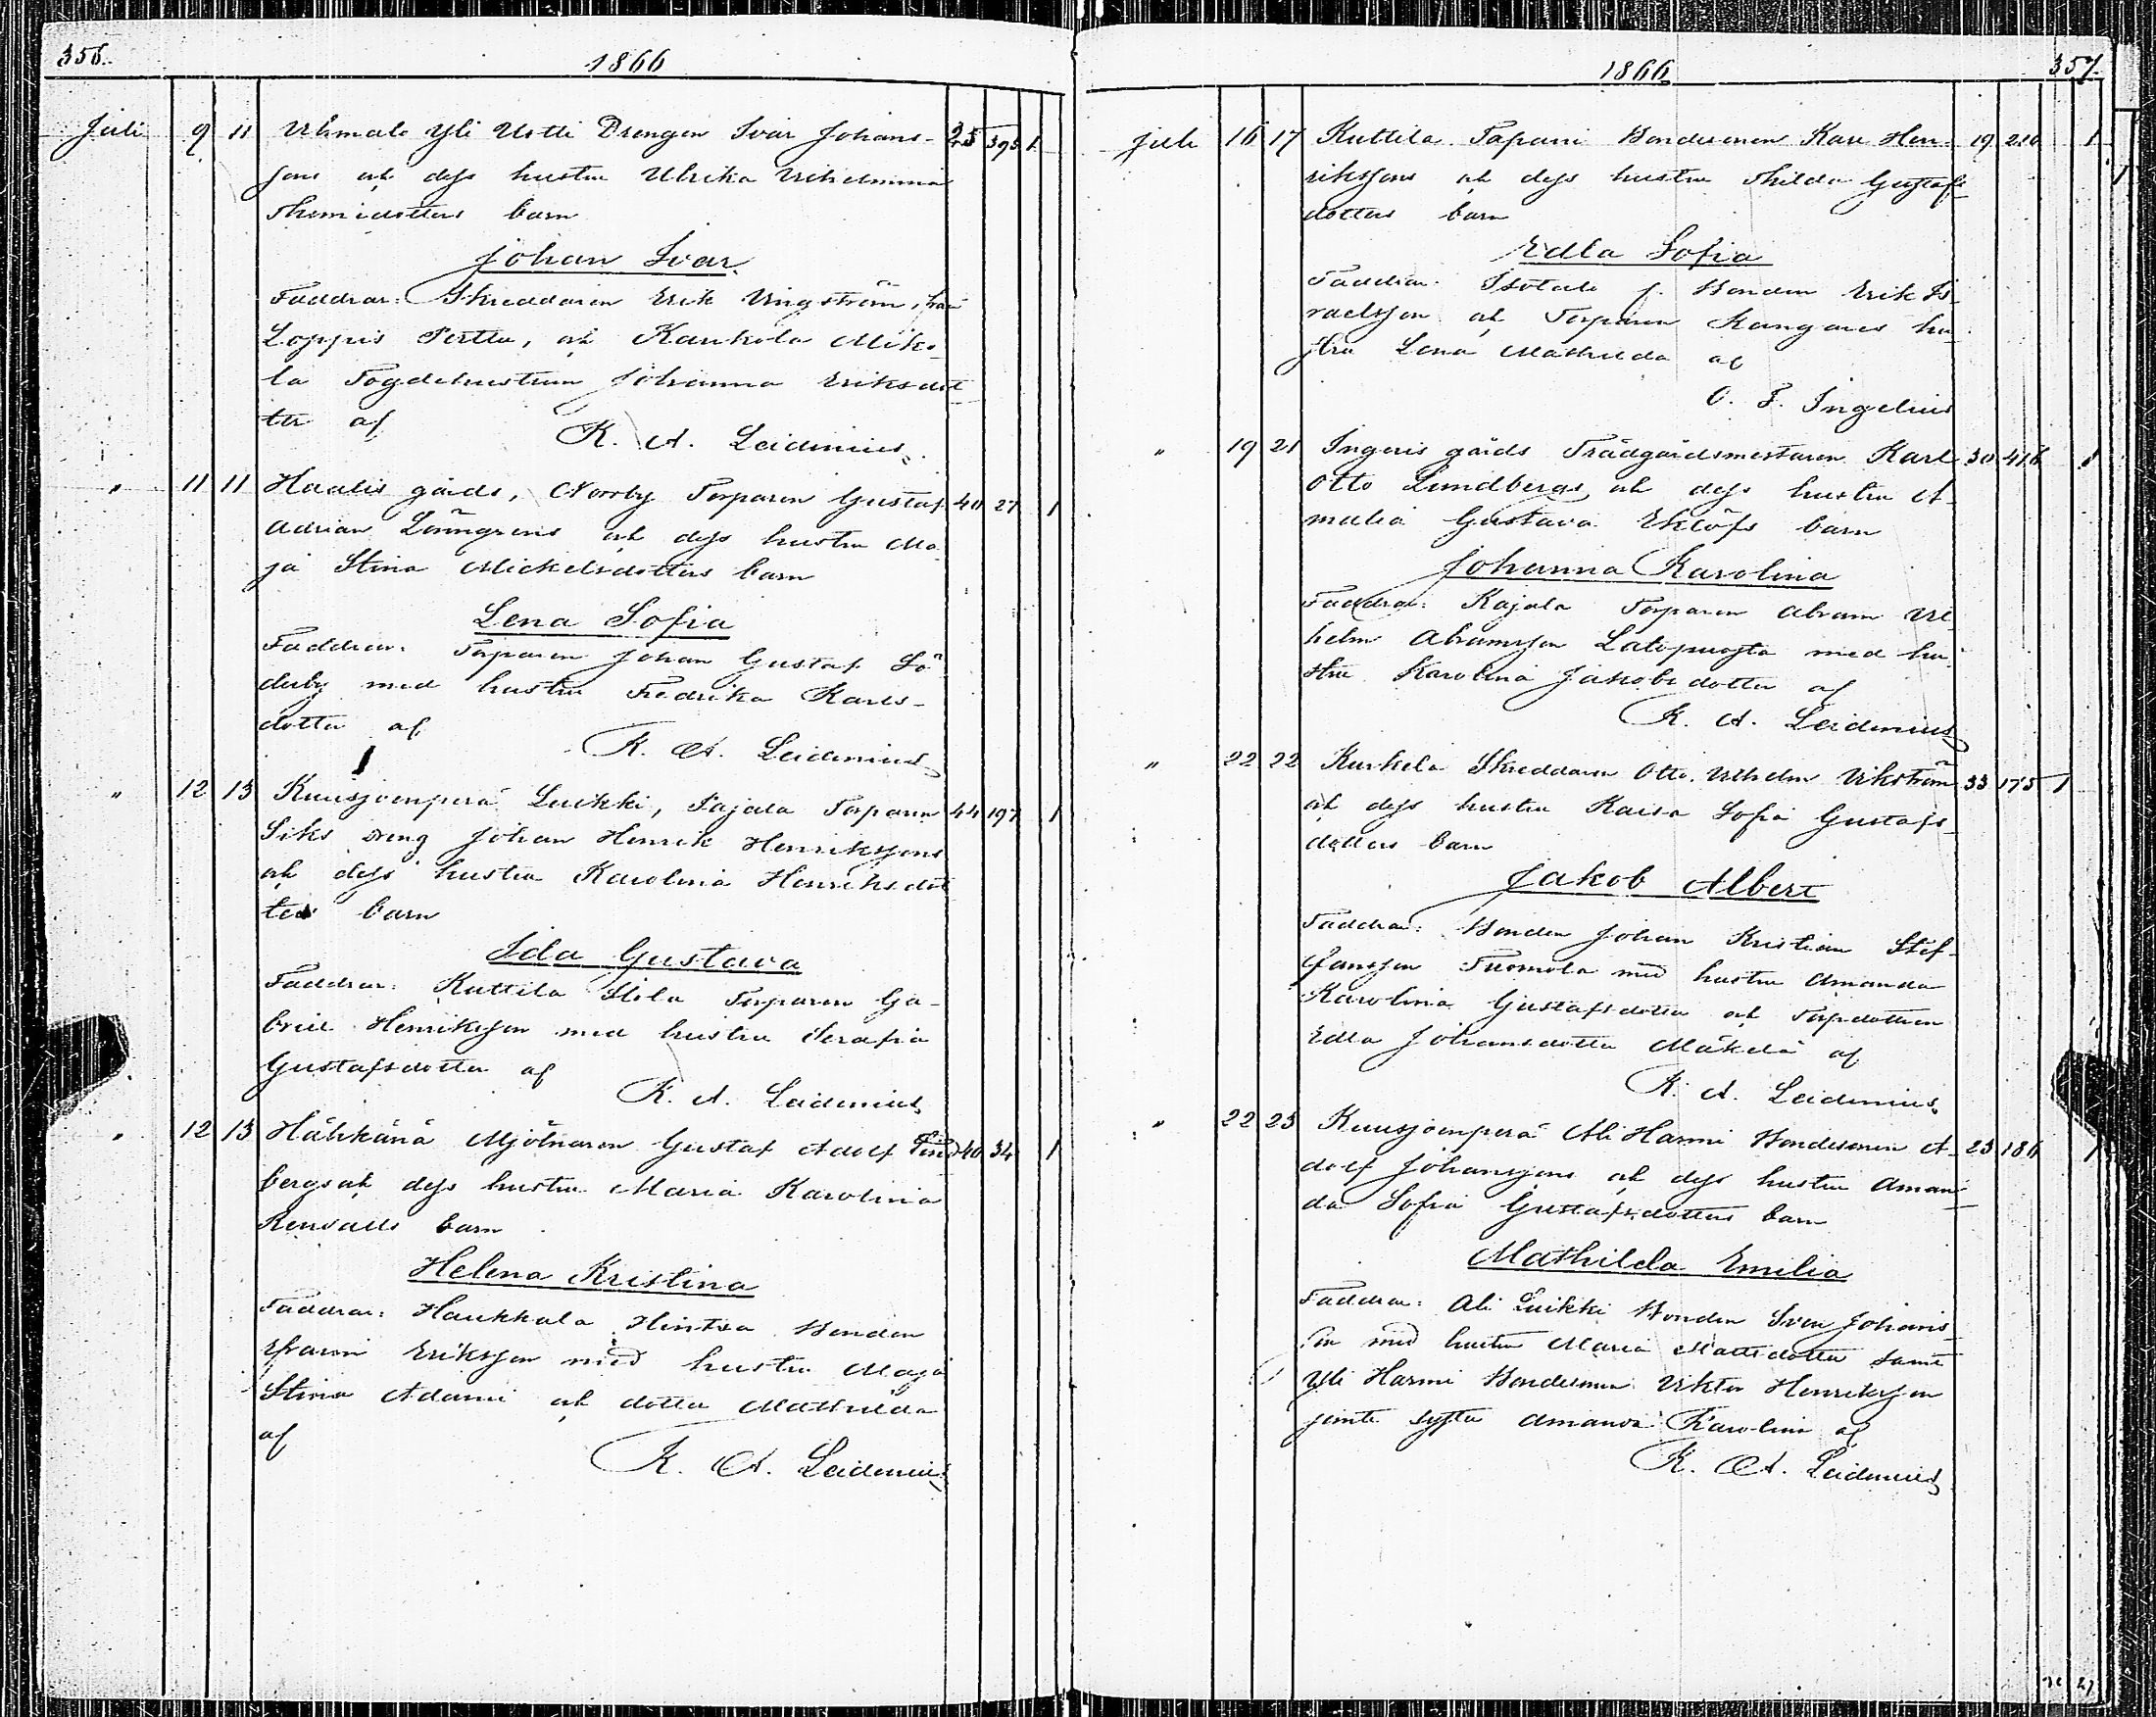 356.
1866
Juli 9 11 Uhmalo Yli Uotti Drengen Ivar Johans- 25 395 1
sons och dess hustru Ulrika Vilhelmina
Thomédotters barn
Johan Ivar.
Faddrar: Skreddaren Erik Vingström, från
Loppis Perttu, och Kankola Mikо-
la Fogdehustrun Johanna Eriksdot
ter af K. A. Leidenius.
" 11 11 Haalis gårds, Norrby Torparen Gustaf 40 27 1
Adrian Lönngrens och dess hustru Ma
ja Stina Mickelsdotters barn
Lena Sofia
Faddrar: Torparen Johan Gustaf Sö
derby med hustru Fredrika Karls-
dotter af K. A. Leidenius
" 12 13 Kuusjoenperä Luikki, Pajala Torparen 44 197 1
Siks dreng Johan Henrik Henrikssons
och dess hustru Karolina Henriksdot
ters barn
Ida Gustava
Faddrar: Kuttila Torparen Ga-
briel Henriksson med hustru Serafia
Gustafsdotter af
K. A. Leidenius
" 12 13 Hähkänä Mjölnaren Gustaf Adolf Lind 40 34 1
bergs och dess hustru Maria Karolina
barn
Helena Kristina
Faddrar: Haukkala Hintsa Bonden
Efraim Eriksson med hustru Maja
Stina Adami och dotter Mathilda
af K. A. Leidenius
1866
357.
Juli 16 17 Kuttila Tapani Bondesonen Karl Hen- 19 210 1
rikssons och dess hustru Hilda Gustafs
dotters barn
Edla Sofia
Faddrar: Isotalo f. Bonden Erik Is-
raelsson och Torparen Kangares hu
stru Lena Mathilda af
O. F. Ingelius
" 19 21 Ingeris gårds Trädgårdsmestaren Karl 30 416 1
Otto Lundbergs och dess hustru A-
malia Gustava Eklöfs barn
Johanna Karolina
Faddrar: Kajala Torparen Abram Vil
helm Abramsson Latopuosta med hu
stru Karolina Jakobsdotter af
K. A. Leidenius
" 22 22 Kurkela Skreddaren Otto Vilhelm Vikström 33 175 1
och dess hustru Kaisa Sofia Gustafs-
dotters barn
Jakob Albert
Faddrar: Bonden Johan Kristian Stef-
fansson Tuomola med hustru Amanda
Karolina Gustafsdotter och Torpdottren
Edla Johansdotter Mäkelä af
K. A. Leidenius
" 22 23 Kuusjoenperä Ali Harmi Bondesonen A- 23 186 1
dolf Johanssons och dess hustru Aman
da Sofia Gustafsdotters barn
Mathilda Emilia
Faddrar: Ali Luikki Bonden Sven Johans-
son med hustru Maria Mattsdotter samt
Yli Harmi Bondesonen Viktor Henriksson
jemte syster Amanda Karolina af
K. A. Leidenius